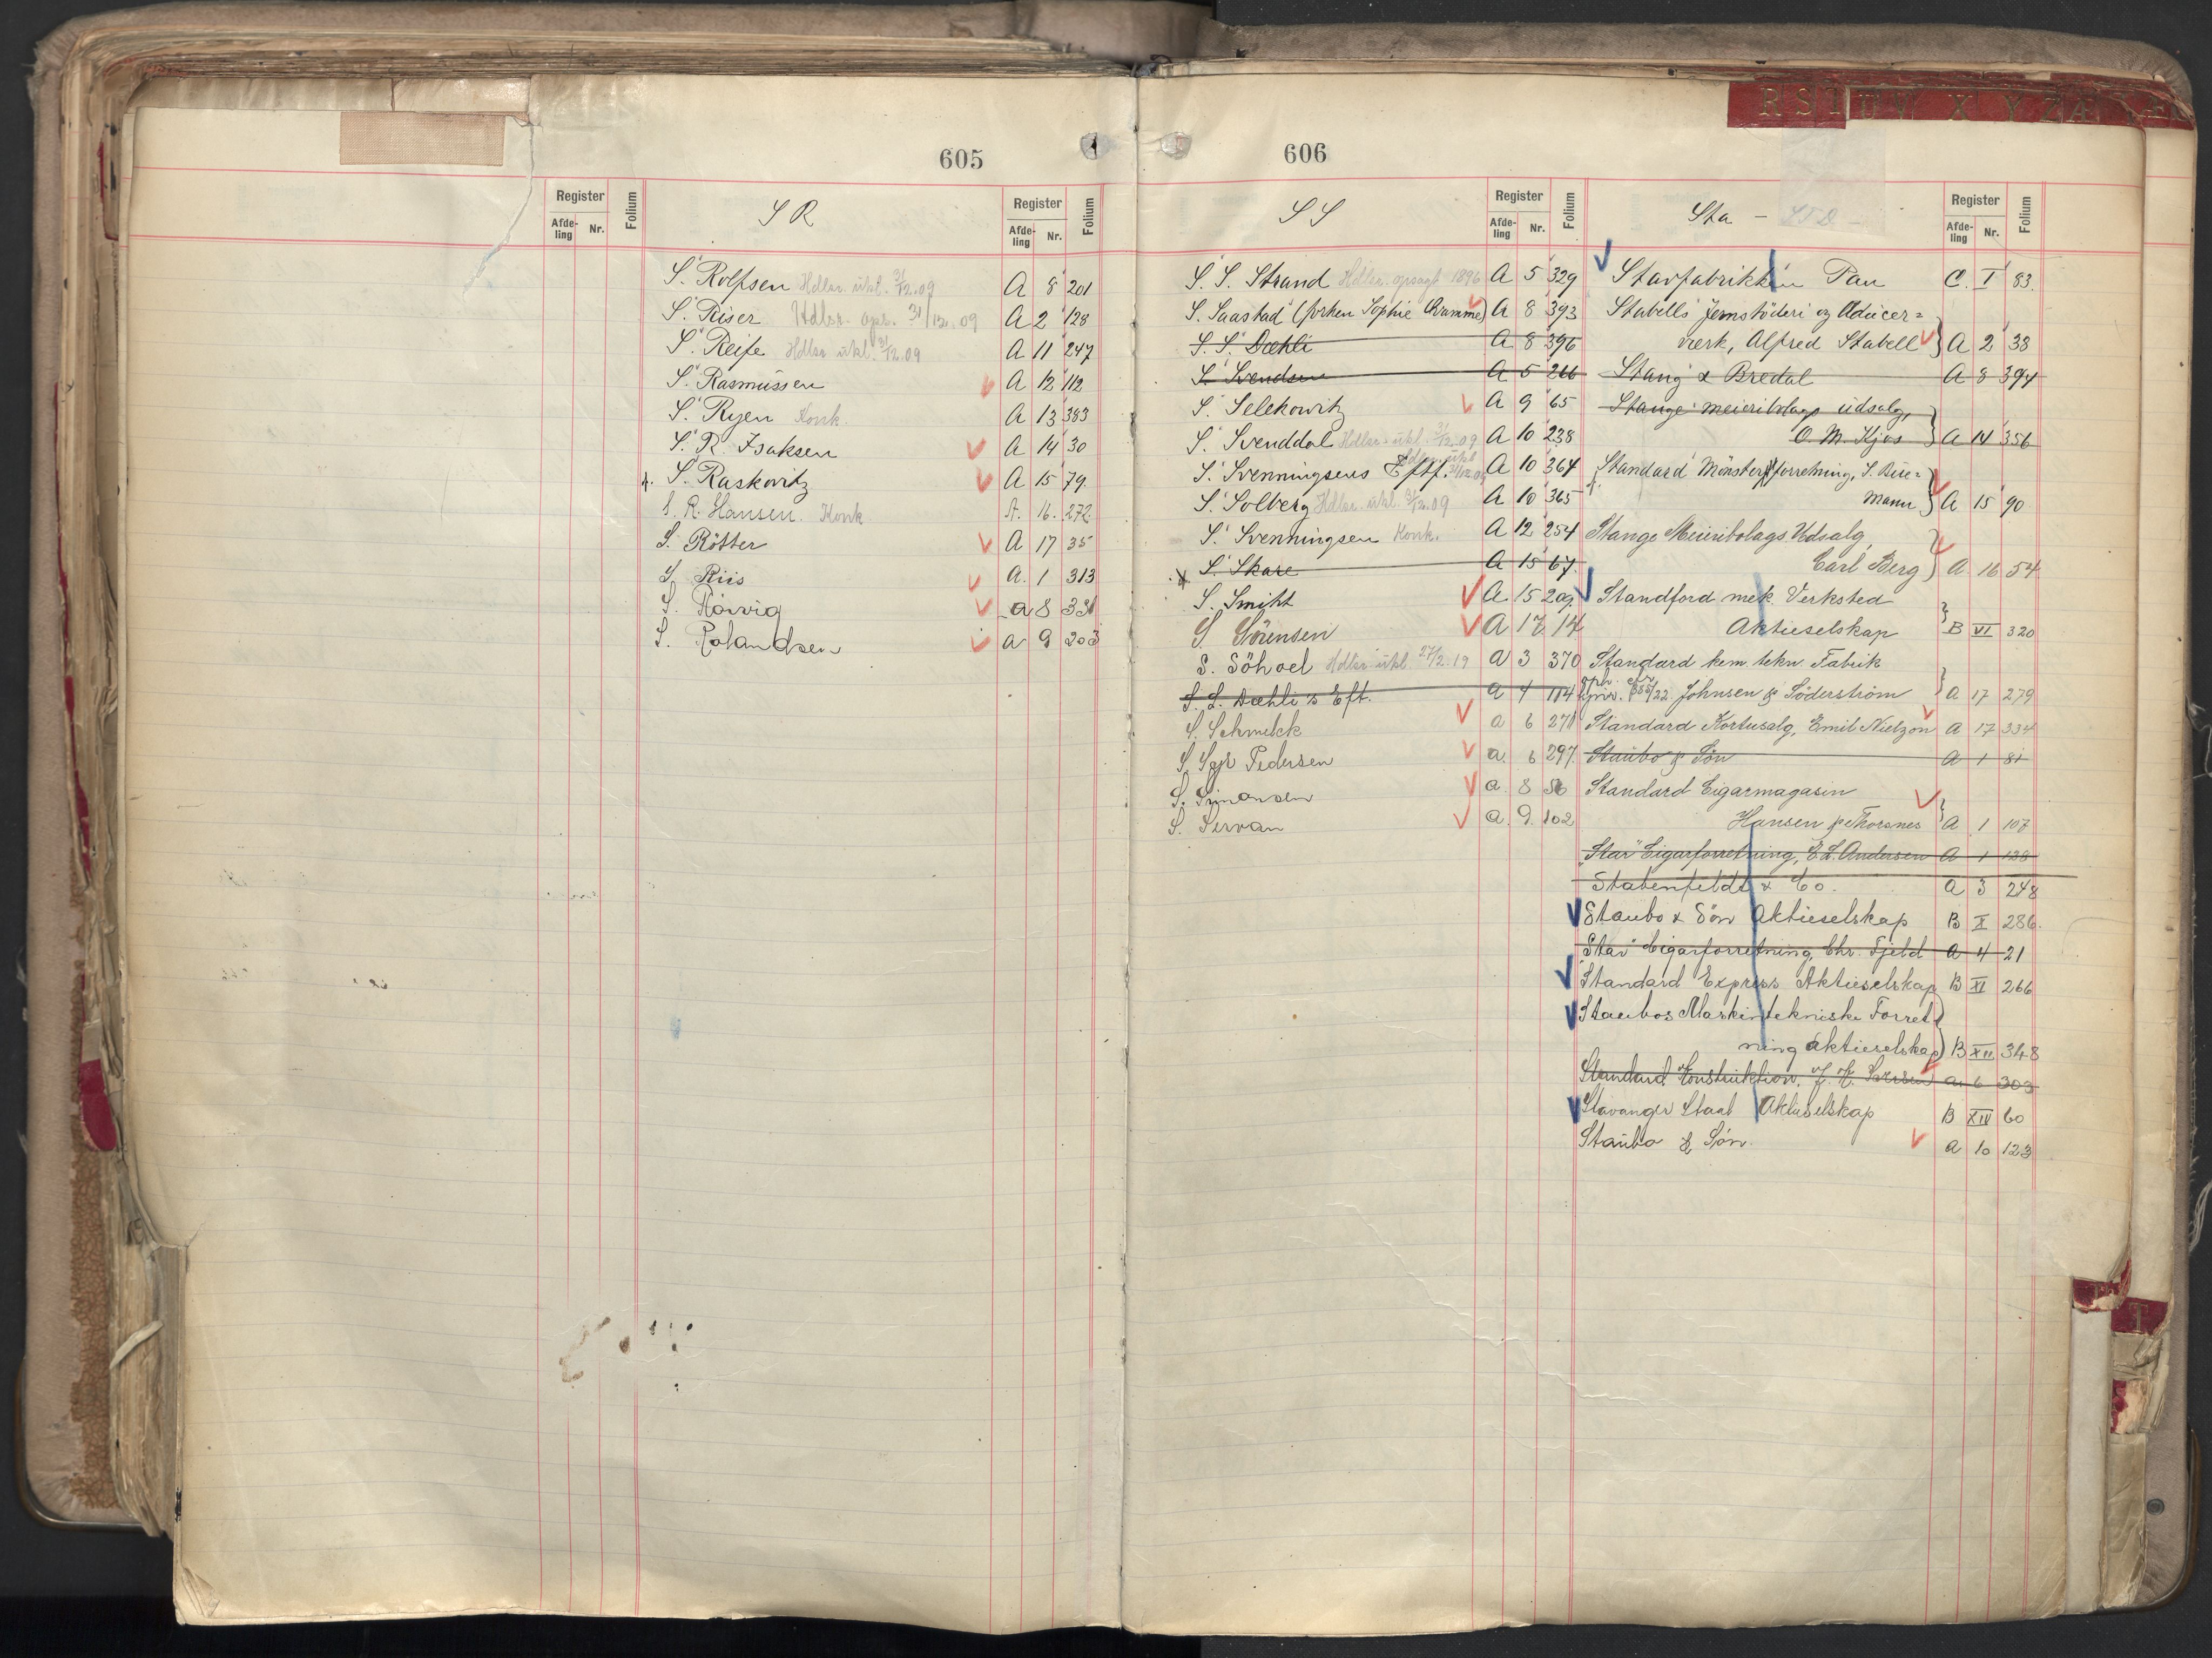 605
Register Folium
Afde-ling Nr.
S R
Register Folium
Afde-ling Nr.
S. Rolfsen Hdlsr. ukl. 31/12.09 A 8 201
S. Riser Hdlsr. opr. 31/12.09 A 2 128
S. Reife Hdlsr. ukl. 31/12.09 A 11 247
S. Rasmussen A 12 112
S. Ryen Konk. A 13 383
S. R. Isaksen A 14 30
S. Raskovitz A 15 79
S. R. Hansen. Konk A. 16. 272
S. Rötter A 17 35
S. Riis A. 1 313
S. Rörvig a 8 331
S. Rolandsen a 9 203
606
S S
Register Folium
Afde-ling Nr.
S. S. Strand Hdlsr. opsagt 1896 A 5 329
S. Saastad (frøken Sophie Gramme) A 8 393
S. S. Dæhli A 8 396
S. Svendsen A 5 266
S. Selekowitz A 9 65
S. Svenddal Hdlsr. ukl. 31/12.09 A 10 238
S. Svenningsens Eftf. Hdlsr. ukl. 31/12.09 A 10 364
S. Solberg Hdlsr. ukl. 31/12.09 A 10 365
S. Svenningsen Konk. A 12 254
S. Skare A 15 67
S. Smiht A 15 209
S Sörensen A 17 14
S. Söhoel Hdlsr. ukl. 27/2.19 A 3 370
S. S. Dæhli's Eft. a 4 114
S. Schmelck a 6 271
S. Sejr Pedersen a. 6 297
S. Simonsen a. 8
S. Servan a. 9. 102
Sta - STD -
Register Folium
Afde-ling Nr.
Stavfabrikken Pan C. I 83.
Stabells Jernstöderi og Aducer=
værk, Alfred Stabell A 2 38
Stang & Bredal A 8 394
Stange meieribolags udsalg,
O. M. Kjos A 14 356
Standard Mönsterforretning, S. Bue=
mann A 15 90
Stange Meieribolags Udsalg,
Carl Berg A 16 54
Standford mek. Verksted
Aktieselskap B VI 320
Standard kem. tekn. Fabrik
Johnsen & Söderström A 17 279
Standard Kortusalg, Emil Nielzon A 17 334
Staubo & Sön A 1 81
Standard Cigarmagasin
Hansen & Thorsnes A 1 107
"Star" Cigarforretning, E. L. Andersen A 1 128
Stabenfeldt & Co. a 3 248
Staubo & Sön Aktieselskap B X 286.
"Star" Cigarforretning, Chr. Fjeld a 4 21
Standard Express Aktieselskap B XI 266
Staubos Maskintekniske Forret=
ning aktieselskap B XII 348
Standard Konstruktion, a. 6 303
Stavanger Staal Aktieselskap B XIV 60
Staubo & Sön. a 10 123
R S T U V X Y Z Æ
T